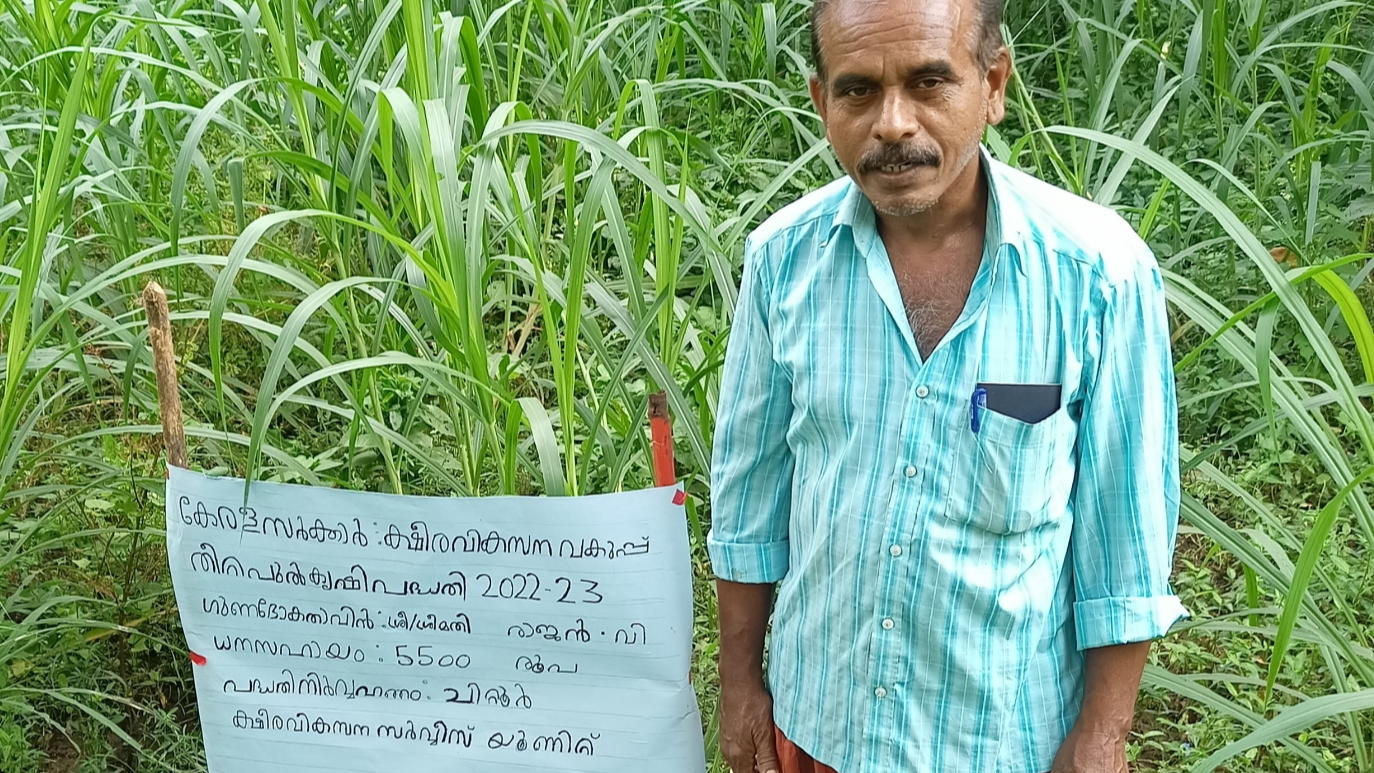 കേരളസർക്കാർ :ക്ഷീരവികസന വകുപ്പ്
തീറ്റപുൽകൃഷിപദ്ധതി 2022-23
ഗുണഭോക്താവിൻ :ശ്രീ/ശ്രീമതി രാജൻ . വി
ധനസഹായം : 5500 രൂപ
പദ്ധതിനിർവ്വഹണം: ചിറ്റൂർ
ക്ഷീരവികസന സർവ്വീസ് യൂണിറ്റ്